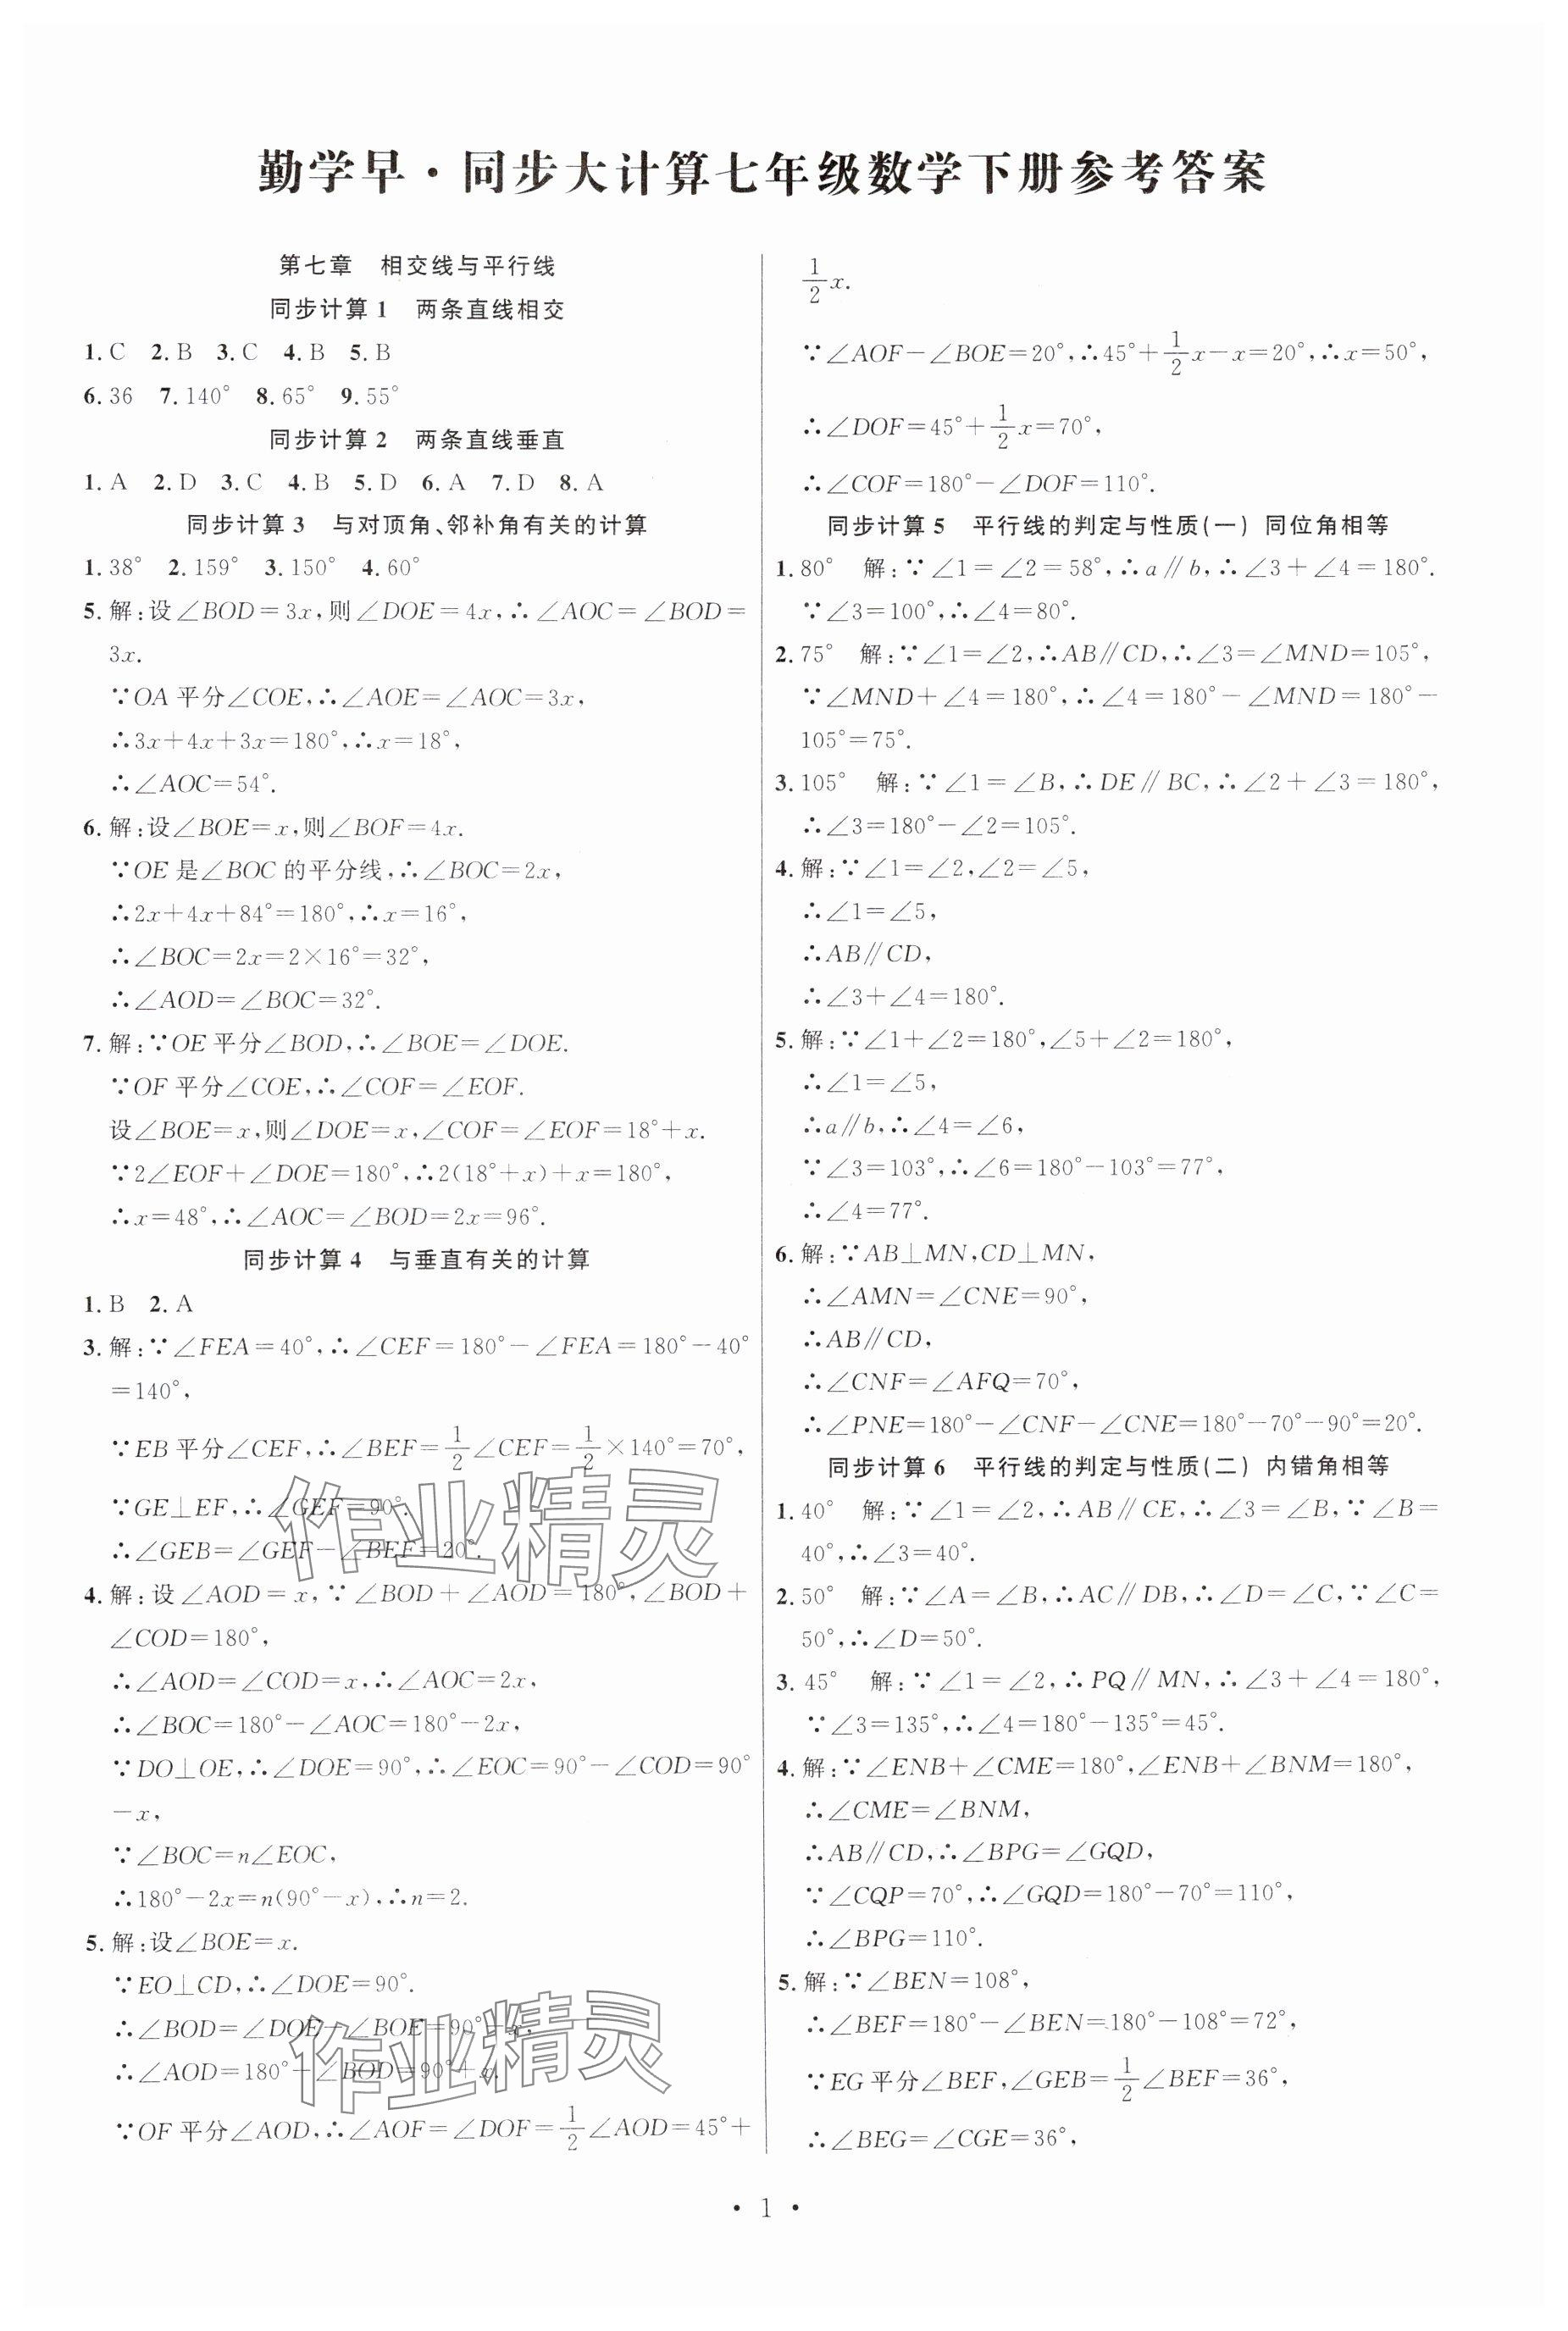 勤学早·同步大计算七年级数学下册参考答案
第七章 相交线与平行线
同步计算1 两条直线相交
1.C 2.B 3.C 4.B 5.B
6.36 7.140° 8.65° 9.55°
同步计算2 两条直线垂直
1.A 2.D 3.C 4.B 5.D 6.A 7.D 8.A
同步计算3 与对顶角、邻补角有关的计算
1.38° 2.159° 3.150° 4.60°
5.解:设∠BOD=3x,则∠DOE=4x,∴∠AOC=∠BOD=
3x.
∵OA平分∠COE,∴∠AOE=∠AOC=3x,
∴3x+4x+3x=180°,∴x=18°,
∴∠AOC=54°.
6.解:设∠BOE=x,则∠BOF=4x.
∵OE是∠BOC的平分线,∴∠BOC=2x,
∴2x+4x+84°=180°,∴x=16°,
∴∠BOC=2x=2×16°=32°,
∴∠AOD=∠BOC=32°.
7.解:∵OE平分∠BOD,∴∠BOE=∠DOE.
∵OF平分∠COE,∴∠COF=∠EOF.
设∠BOE=x,则∠DOE=x,∠COF=∠EOF=18°+x.
∵2∠EOF+∠DOE=180°,∴2(18°+x)+x=180°,
∴x=48°,∴∠AOC=∠BOD=2x=96°.
同步计算4 与垂直有关的计算
1.B 2.A
3.解:∵∠FEA=40°,∴∠CEF=180°-∠FEA=180°-40°
=140°,
∵EB平分∠CEF,∴∠BEF=1/2∠CEF=1/2×140°=70°,
∵GE⊥EF,∴∠GEF=90°.
∴∠GEB=∠GEF-∠BEF=20°.
4.解:设∠AOD=x,∵∠BOD+∠AOD=180°,∠BOD+
∠COD=180°,
∴∠AOD=∠COD=x,∴∠AOC=2x,
∴∠BOC=180°-∠AOC=180°-2x,
∵DO⊥OE,∴∠DOE=90°,∴∠EOC=90°-∠COD=90°
-x,
∵∠BOC=n∠EOC,
∴180°-2x=n(90°-x),∴n=2.
5.解:设∠BOE=x.
∵EO⊥CD,∴∠DOE=90°.
∴∠BOD=∠DOE-∠BOE=90°-x,
∴∠AOD=180°-∠BOD=90°+x.
∵OF平分∠AOD,∴∠AOF=∠DOF=1/2∠AOD=45°+
1/2x.
∵∠AOF-∠BOE=20°,∴45°+1/2x-x=20°,∴x=50°,
∴∠DOF=45°+1/2x=70°,
∴∠COF=180°-∠DOF=110°.
同步计算5 平行线的判定与性质(一) 同位角相等
1.80° 解:∵∠1=∠2=58°,∴a∥b,∴∠3+∠4=180°.
∵∠3=100°,∴∠4=80°.
2.75° 解:∵∠1=∠2,∴AB∥CD,∴∠3=∠MND=105°,
∵∠MND+∠4=180°,∴∠4=180°-∠MND=180°-
105°=75°.
3.105° 解:∵∠1=∠B,∴DE∥BC,∴∠2+∠3=180°,
∴∠3=180°-∠2=105°.
4.解:∵∠1=∠2,∠2=∠5,
∴∠1=∠5,
∴AB∥CD,
∴∠3+∠4=180°.
5.解:∵∠1+∠2=180°,∠5+∠2=180°,
∴∠1=∠5,
∴a∥b,∴∠4=∠6,
∵∠3=103°,∴∠6=180°-103°=77°,
∴∠4=77°.
6.解:∵AB⊥MN,CD⊥MN,
∴∠AMN=∠CNE=90°,
∴AB∥CD,
∴∠CNF=∠AFQ=70°,
∴∠PNE=180°-∠CNF-∠CNE=180°-70°-90°=20°.
同步计算6 平行线的判定与性质(二) 内错角相等
1.40° 解:∵∠1=∠2,∴AB∥CE,∴∠3=∠B,∵∠B=
40°,∴∠3=40°.
2.50° 解:∵∠A=∠B,∴AC∥DB,∴∠D=∠C,∵∠C=
50°,∴∠D=50°.
3.45° 解:∵∠1=∠2,∴PQ∥MN,∴∠3+∠4=180°,
∵∠3=135°,∴∠4=180°-135°=45°.
4.解:∵∠ENB+∠CME=180°,∠ENB+∠BNM=180°,
∴∠CME=∠BNM,
∴AB∥CD,∴∠BPG=∠GQD,
∵∠CQP=70°,∴∠GQD=180°-70°=110°,
∴∠BPG=110°.
5.解:∵∠BEN=108°,
∴∠BEF=180°-∠BEN=180°-108°=72°,
∵EG平分∠BEF,∠GEB=1/2∠BEF=36°,
∴∠BEG=∠CGE=36°,
• 1 •
作业精灵
作业精灵